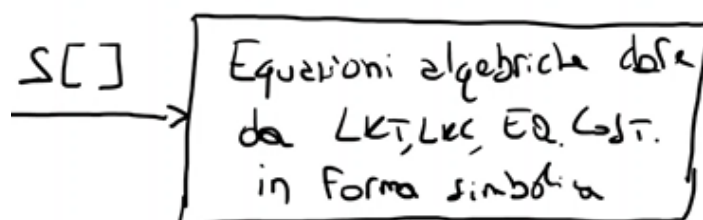 S[]
Equazioni algebriche date
da LKT, LKC, EQ. COST.
in forma simbolica